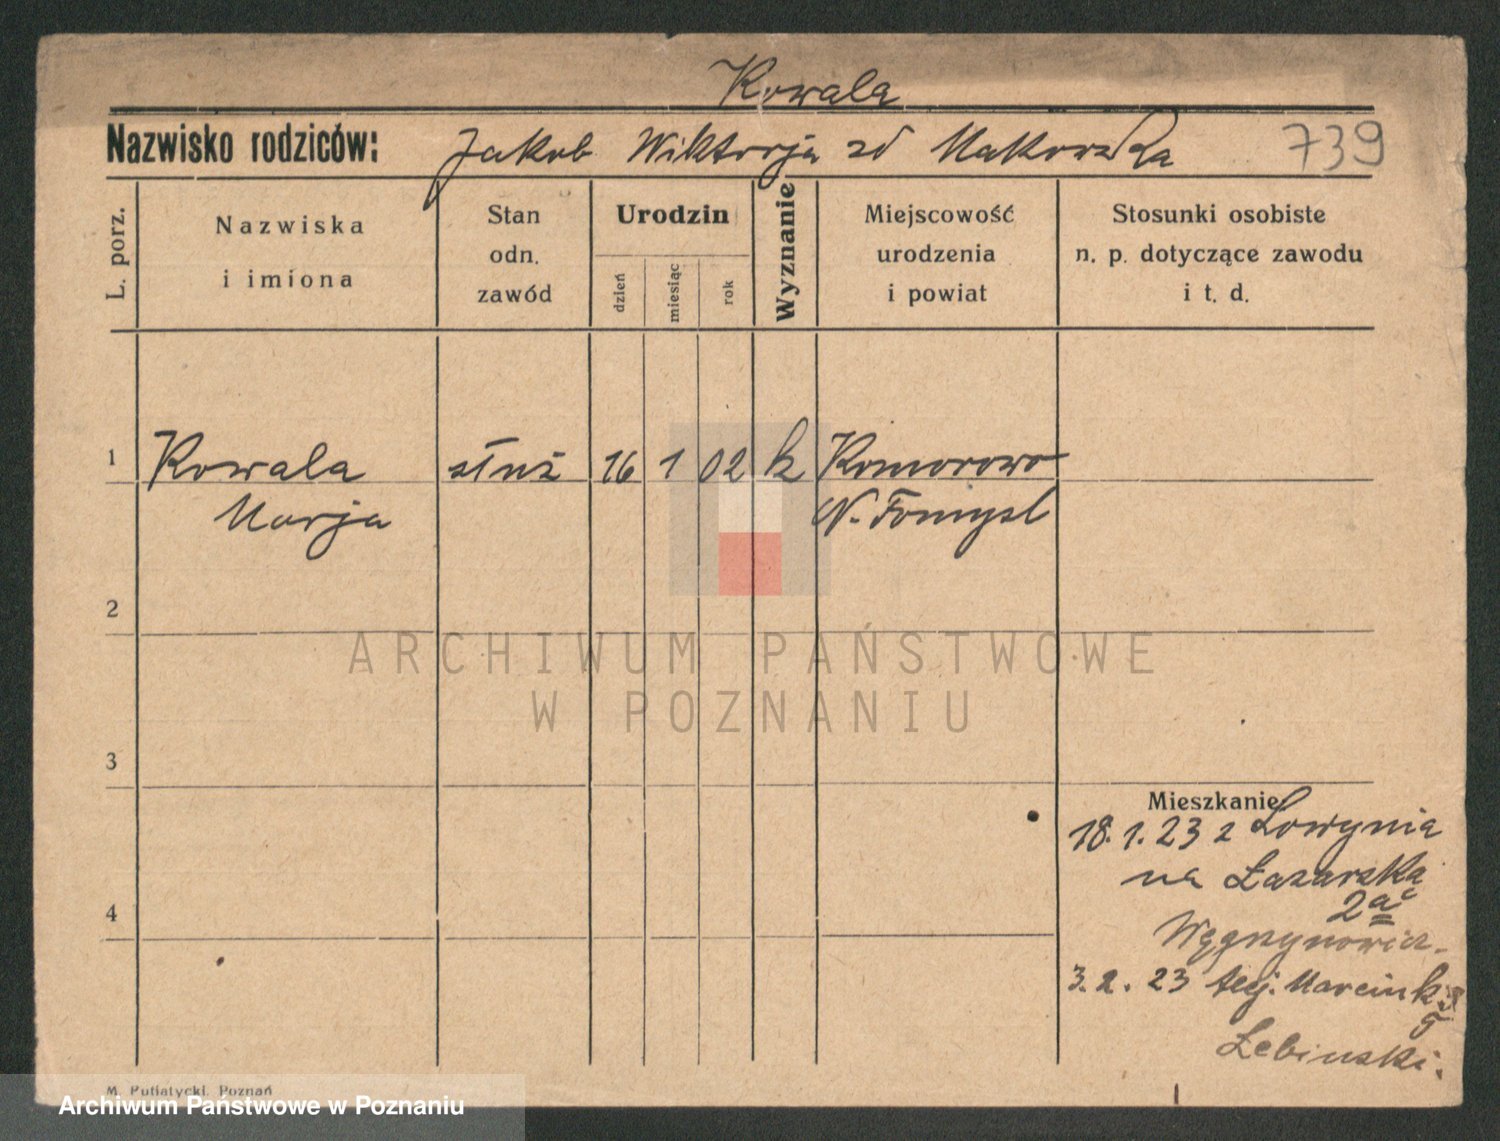 Kowala
Nazwisko rodziców: Jakob Wiktorja zd Makowska 739
L. porz.
Nazwiska i imiona
Stan odn. zawód
Urodzin
dzień
miesiąc
rok
Wyznanie
Miejscowość urodzenia i powiat
Stosunki osobiste n. p. dotyczące zawodu i t. d.
1 Kowala służ 16 1 02 k Komorowo
Marja N. Tomysl
2
3
4
Mieszkanie
18.1.23 z Lowynia
na Łazarska
2a
3.2.23 Marcink.
5
Łebinski.
M. Putiatycki, Poznań
ARCHIWUM PAŃSTWOWE
W POZNANIU
Archiwum Państwowe w Poznaniu